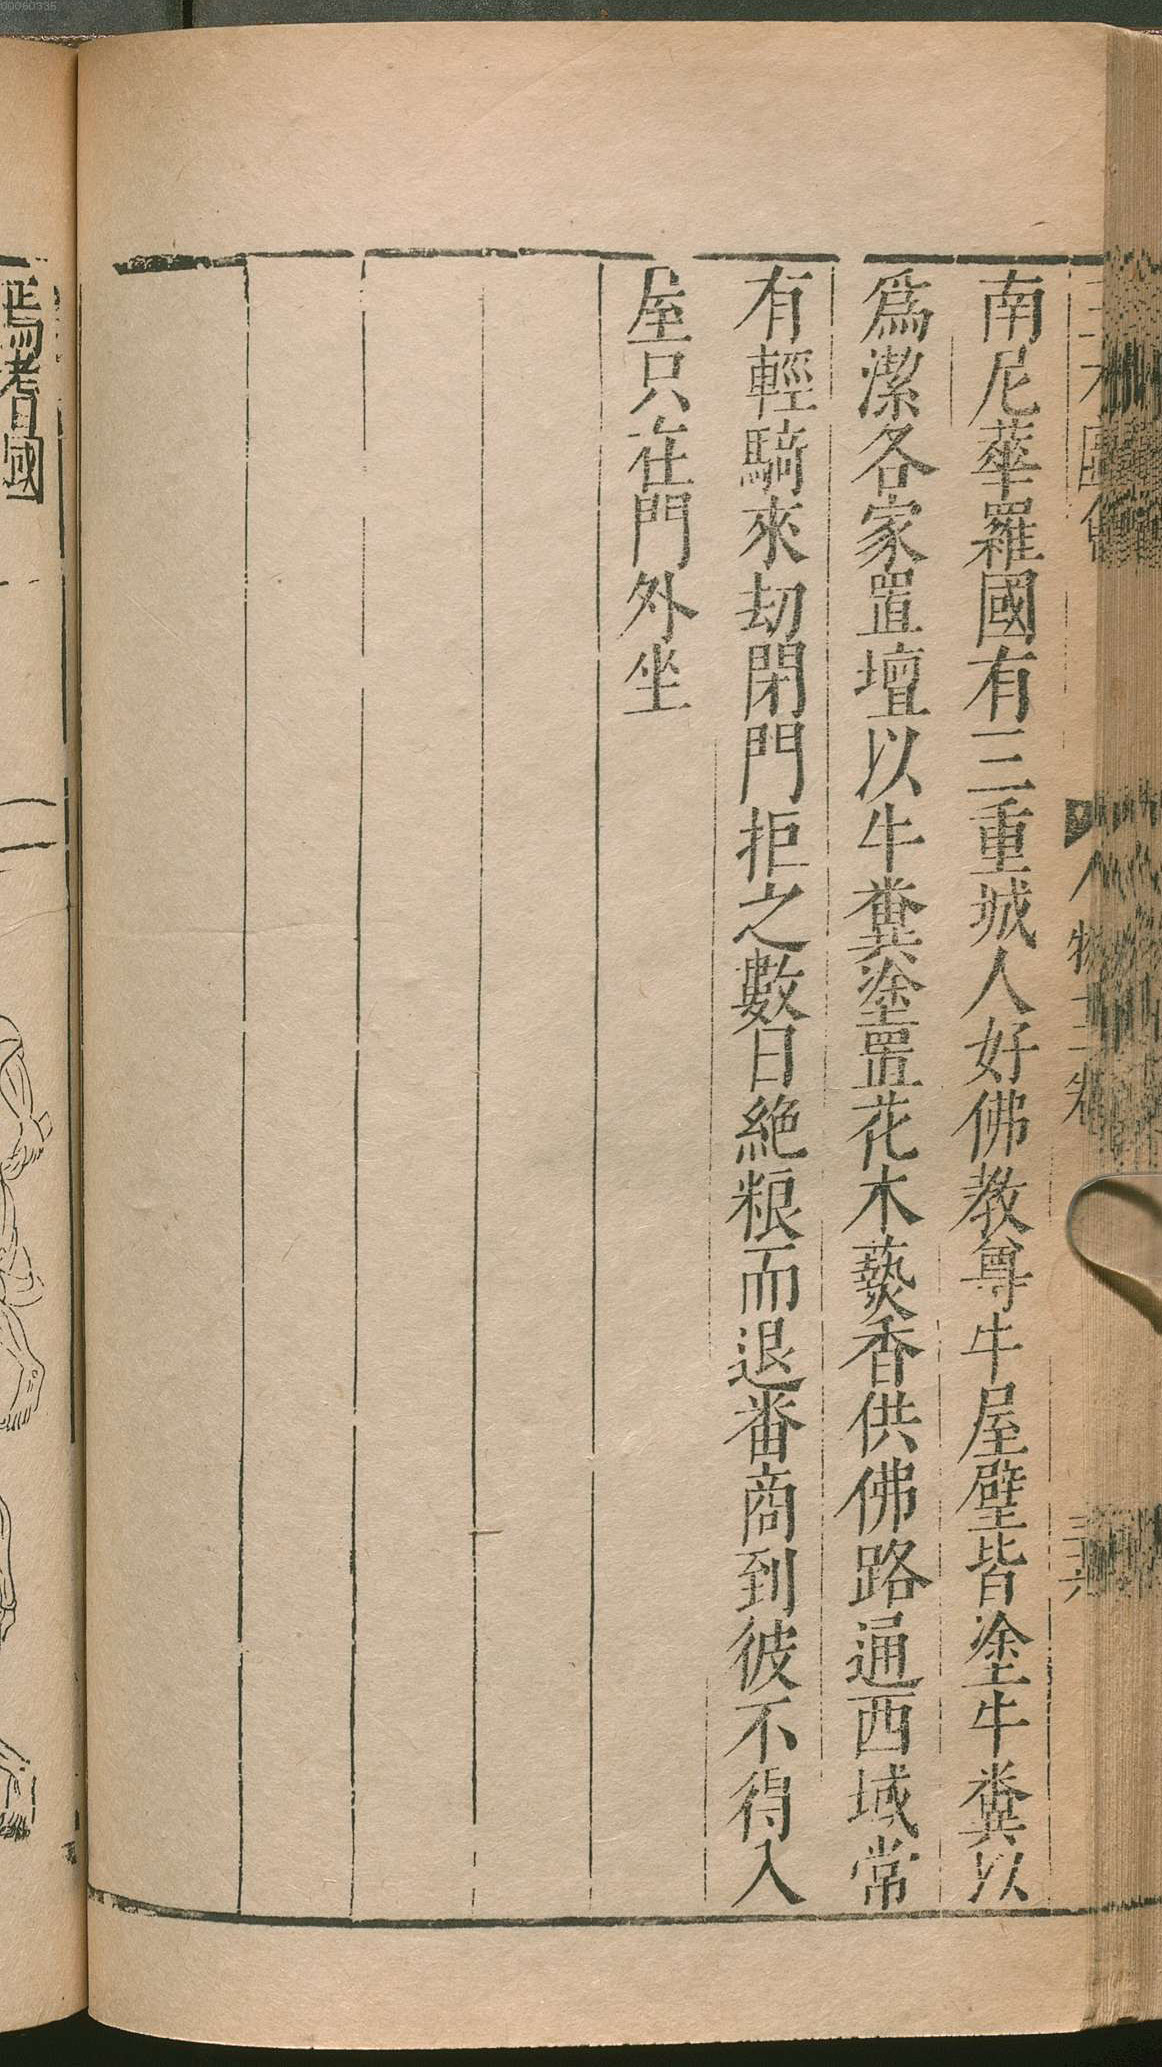 南尼華羅國有三重城人好佛教尊牛屋壁皆塗牛糞以
爲潔各家置壇以牛糞塗置花木爇香供佛路通西域常
有輕騎來刧閉門拒之數日絶粮而退番商到彼不得入
屋只在門外坐
焉耆國
00060336